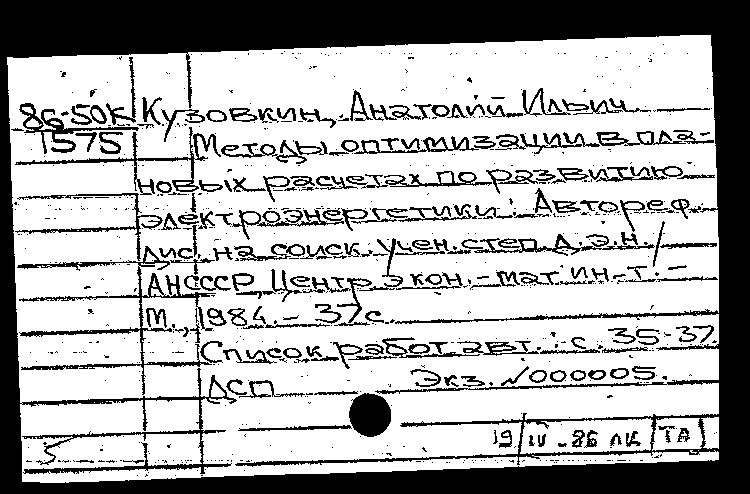 86-50К Кузовкин, Анатолий Ильич.
1575 Методы оптимизации в пла-
новых расчетах по развитию
электроэнергетики : Автореф.
дис. на соиск. учен. степ. д.э.н. /
АН СССР, Центр. экон.-мат. ин-т. -
М., 1984. - 37 с.
Список работ авт. : с. 35-37.
ДСП Экз. №000005.
19/IV - 86 ЛК /ТА/
5